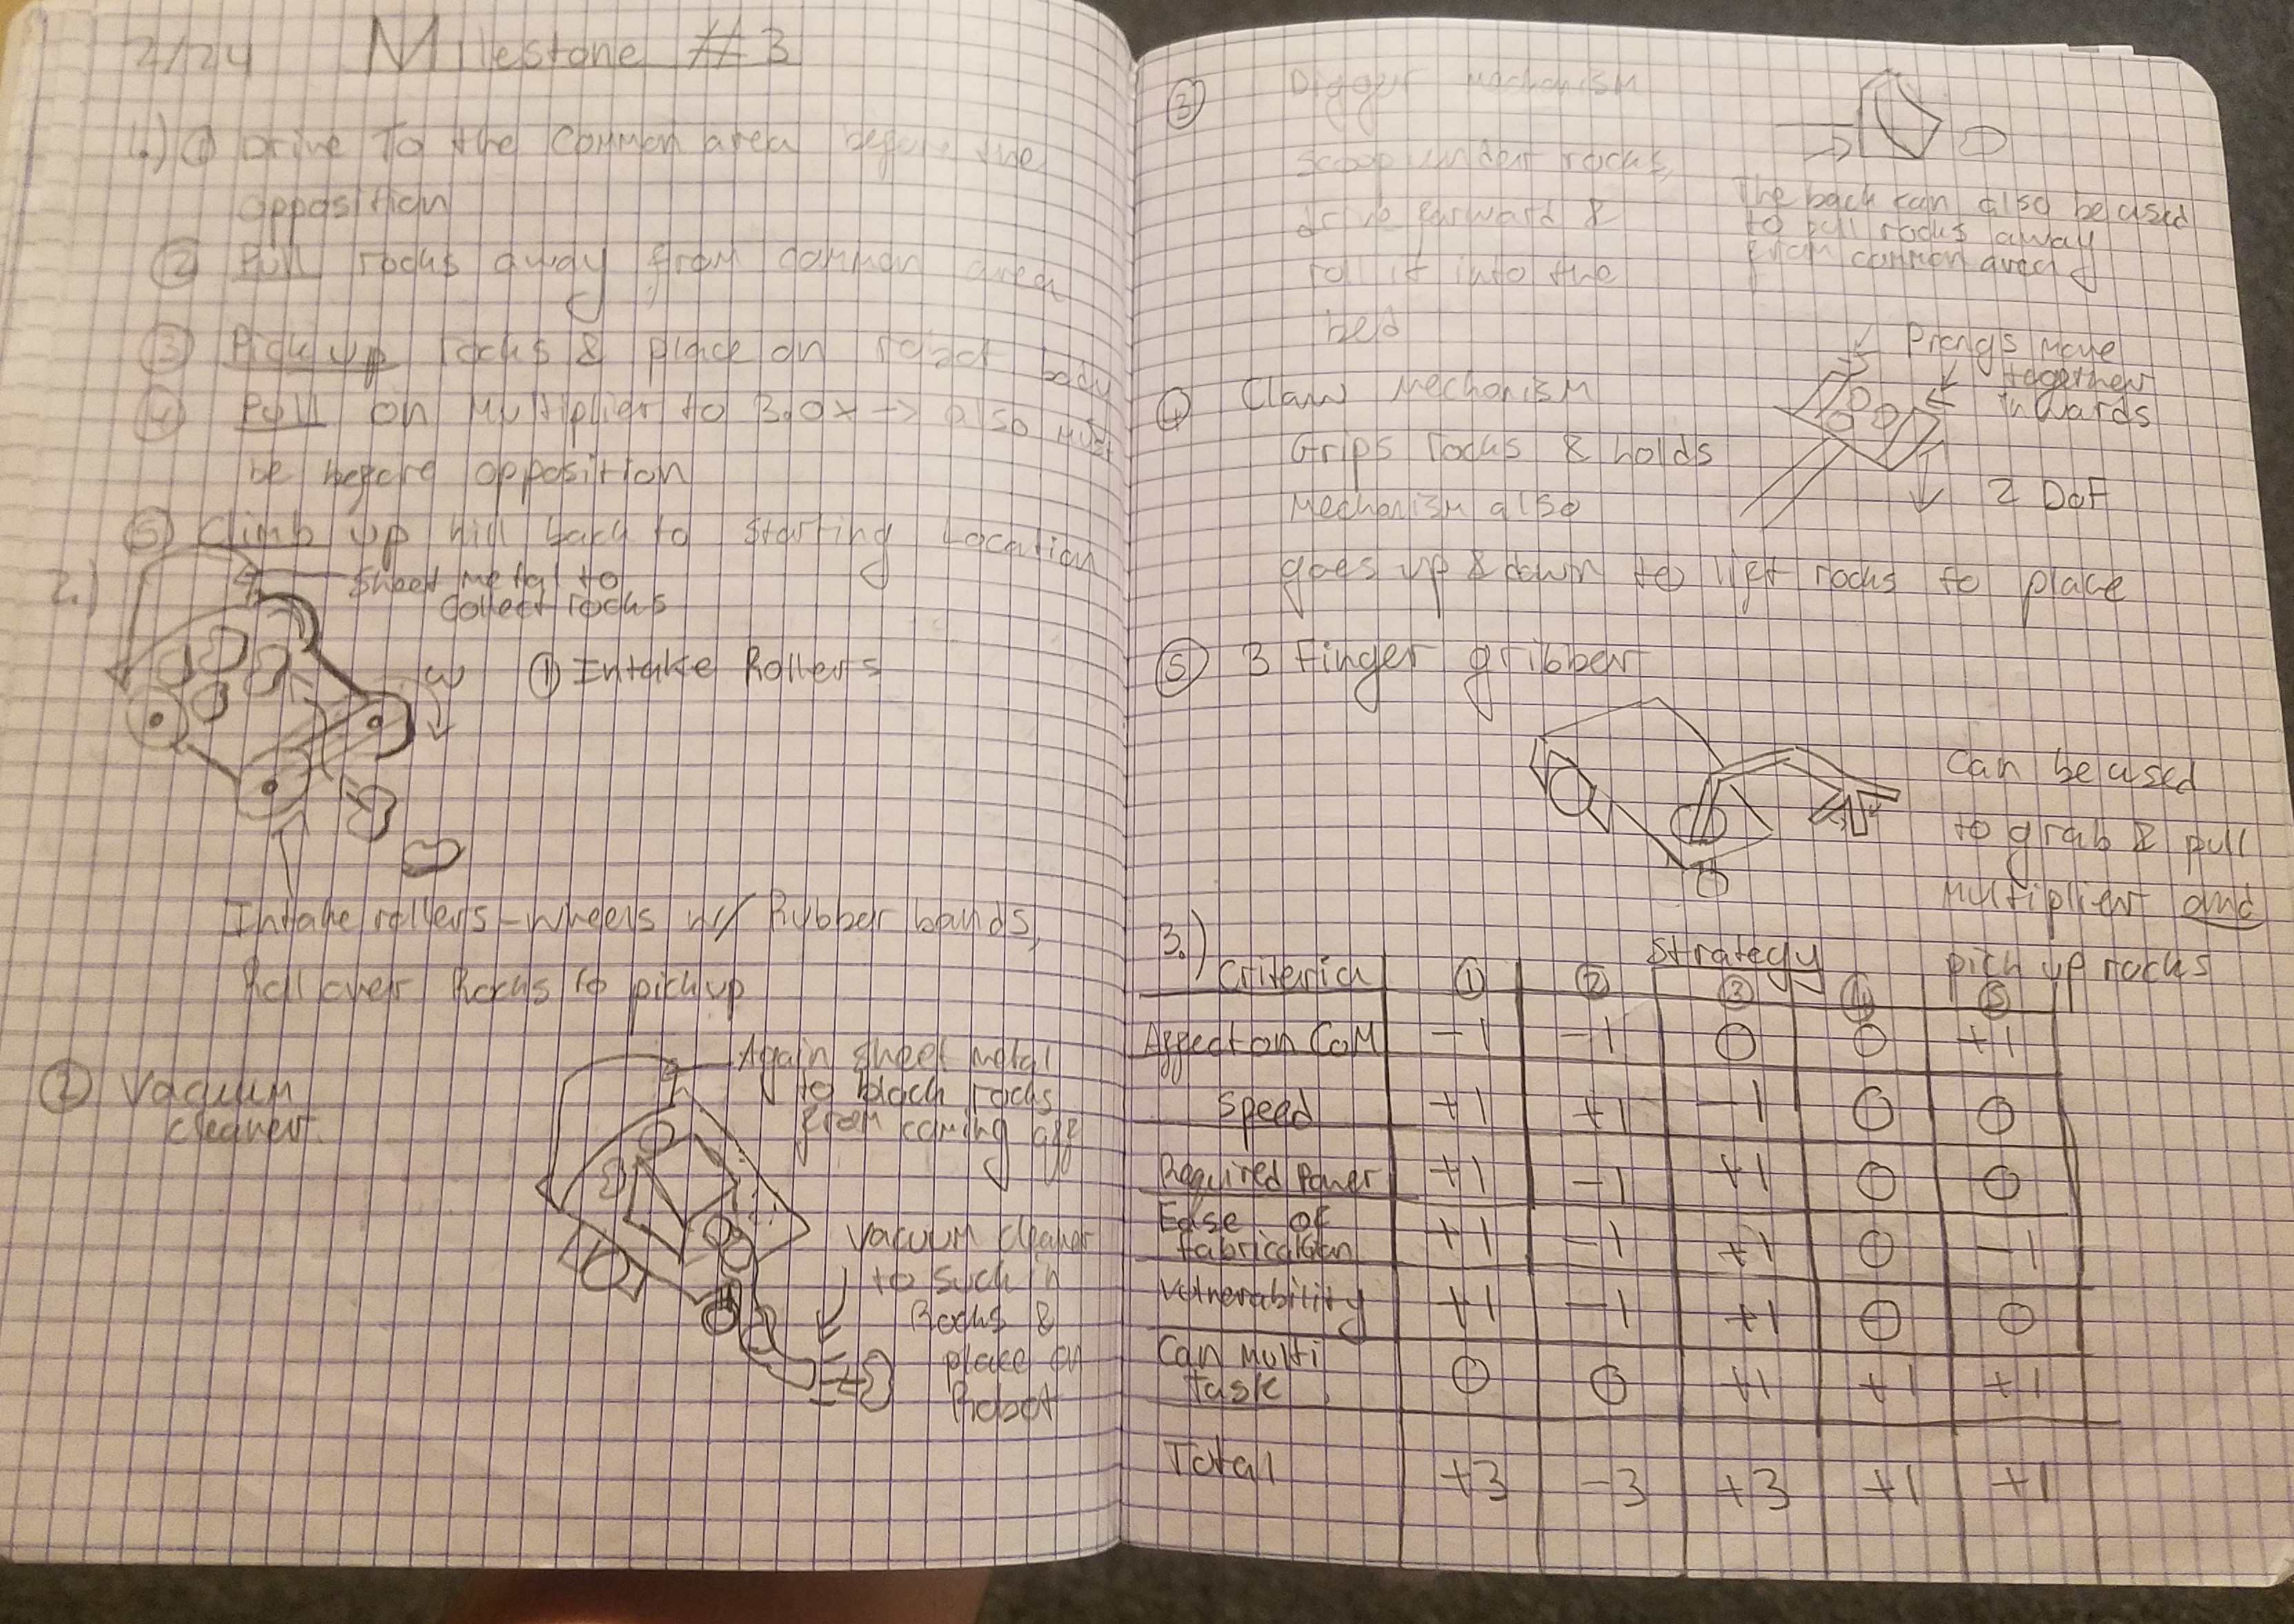 2/24 Milestone #3
1.) ① Drive To the Common area before the
opposition
② Pull rocks away from common area
③ Pick up rocks & place on robot body
④ Pull on Multiplier to 3.0x → also must
be before opposition
⑤ Climb up hill back to starting Location
2.)
Sheet metal to
collect rocks
① Intake Rollers
ω
Intake rollers - wheels w/ Rubber bands,
Roll over Rocks to pick up
② Vacuum
cleaner.
Again sheet metal
to block rocks
from coming off
Vacuum cleaner
to suck in
Rocks &
place on
Robot
③ Digger mechanism
Scoop under rocks,
drive forward &
roll it into the
bed
The back can also be used
to pull rocks away
from common area
④ Claw Mechanism
Grips rocks & holds
Mechanism also
goes up & down to lift rocks to place
Prongs move
together
inwards
2 DoF
⑤ 3 Finger gribber
Can be used
to grab & pull
Multiplier and
pick up rocks
3.)
Strategy
Criteria ① ② ③ ④ ⑤
Affect on CoM -1 -1 0 0 +1
Speed +1 +1 -1 0 0
Required Power +1 -1 +1 0 0
Ease of
fabrication +1 -1 +1 0 -1
Vulnerability +1 -1 +1 0 0
Can Multi
task 0 0 +1 +1 +1
Total +3 -3 +3 +1 +1